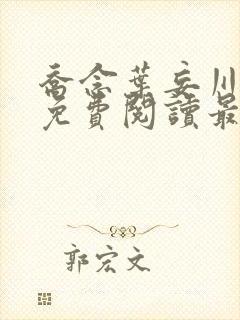 喬念葉妄川
免費閱讀最
郭宏文